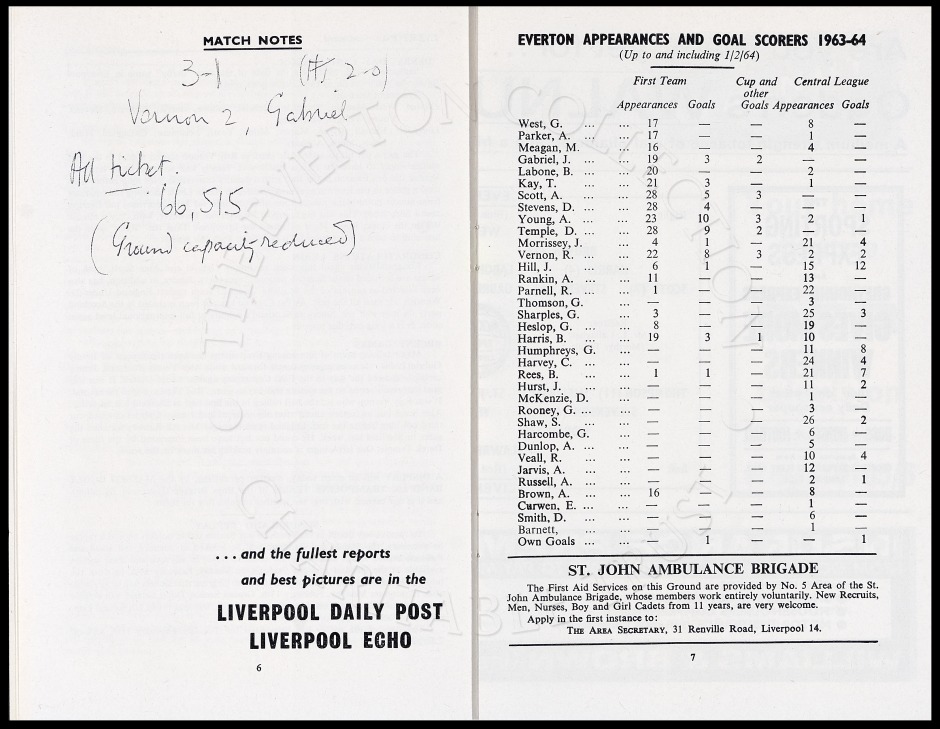 MATCH NOTES
3-1 (Ht 2-0)
Vernon 2, Gabriel
All ticket.
66,515
(Ground capacity reduced)
... and the fullest reports
and best pictures are in the
LIVERPOOL DAILY POST
LIVERPOOL ECHO
6
EVERTON APPEARANCES AND GOAL SCORERS 1963-64
(Up to and including 1/2/64)
First Team Cup and other Central League
Appearances Goals Goals Appearances Goals
West, G. ... ... 17 — — 8 —
Parker, A. ... ... 17 — — 1 —
Meagan, M. ... 16 — — 4 —
Gabriel, J. ... ... 19 3 2 — —
Labone, B. ... ... 20 — — 2 —
Kay, T. ... ... 21 3 — 1 —
Scott, A. ... ... 28 5 3 — —
Stevens, D. ... ... 28 4 — — —
Young, A. ... ... 23 10 3 2 1
Temple, D. ... ... 28 9 2 — —
Morrissey, J. ... 4 1 — 21 4
Vernon, R. ... ... 22 8 3 2 2
Hill, J. ... ... 6 1 — 15 12
Rankin, A. ... ... 11 — — 13 —
Parnell, R. ... ... 1 — — 22 —
Thomson, G. ... — — — 3 —
Sharples, G. ... 3 — — 25 3
Heslop, G. ... ... 8 — — 19 —
Harris, B. ... ... 19 3 1 10 —
Humphreys, G. ... — — — 11 8
Harvey, C. ... ... — — — 24 4
Rees, B. ... ... 1 1 — 21 7
Hurst, J. ... ... — — — 11 2
McKenzie, D. ... — — — 1 —
Rooney, G. ... ... — — — 3 —
Shaw, S. ... ... — — — 26 2
Harcombe, G. ... — — — 6 —
Dunlop, A. ... ... — — — 5 —
Veall, R. ... ... — — — 10 4
Jarvis, A. ... ... — — — 12 —
Russell, A. ... ... — — — 2 1
Brown, A. ... ... 16 — — 8 —
Curwen, E. ... ... — — — 1 —
Smith, D. ... ... — — — 6 —
Barnett, ... ... — — — 1 —
Own Goals ... ... 1 — — 1
ST. JOHN AMBULANCE BRIGADE
The First Aid Services on this Ground are provided by No. 5 Area of the St.
John Ambulance Brigade, whose members work entirely voluntarily. New Recruits,
Men, Nurses, Boy and Girl Cadets from 11 years, are very welcome.
Apply in the first instance to:
THE AREA SECRETARY, 31 Renville Road, Liverpool 14.
7
© THE EVERTON COLLECTION CHARITABLE TRUST